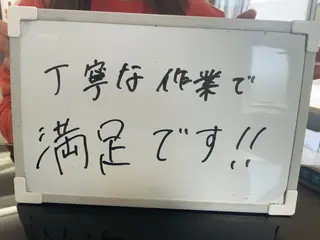 丁寧な作業で
満足です!!